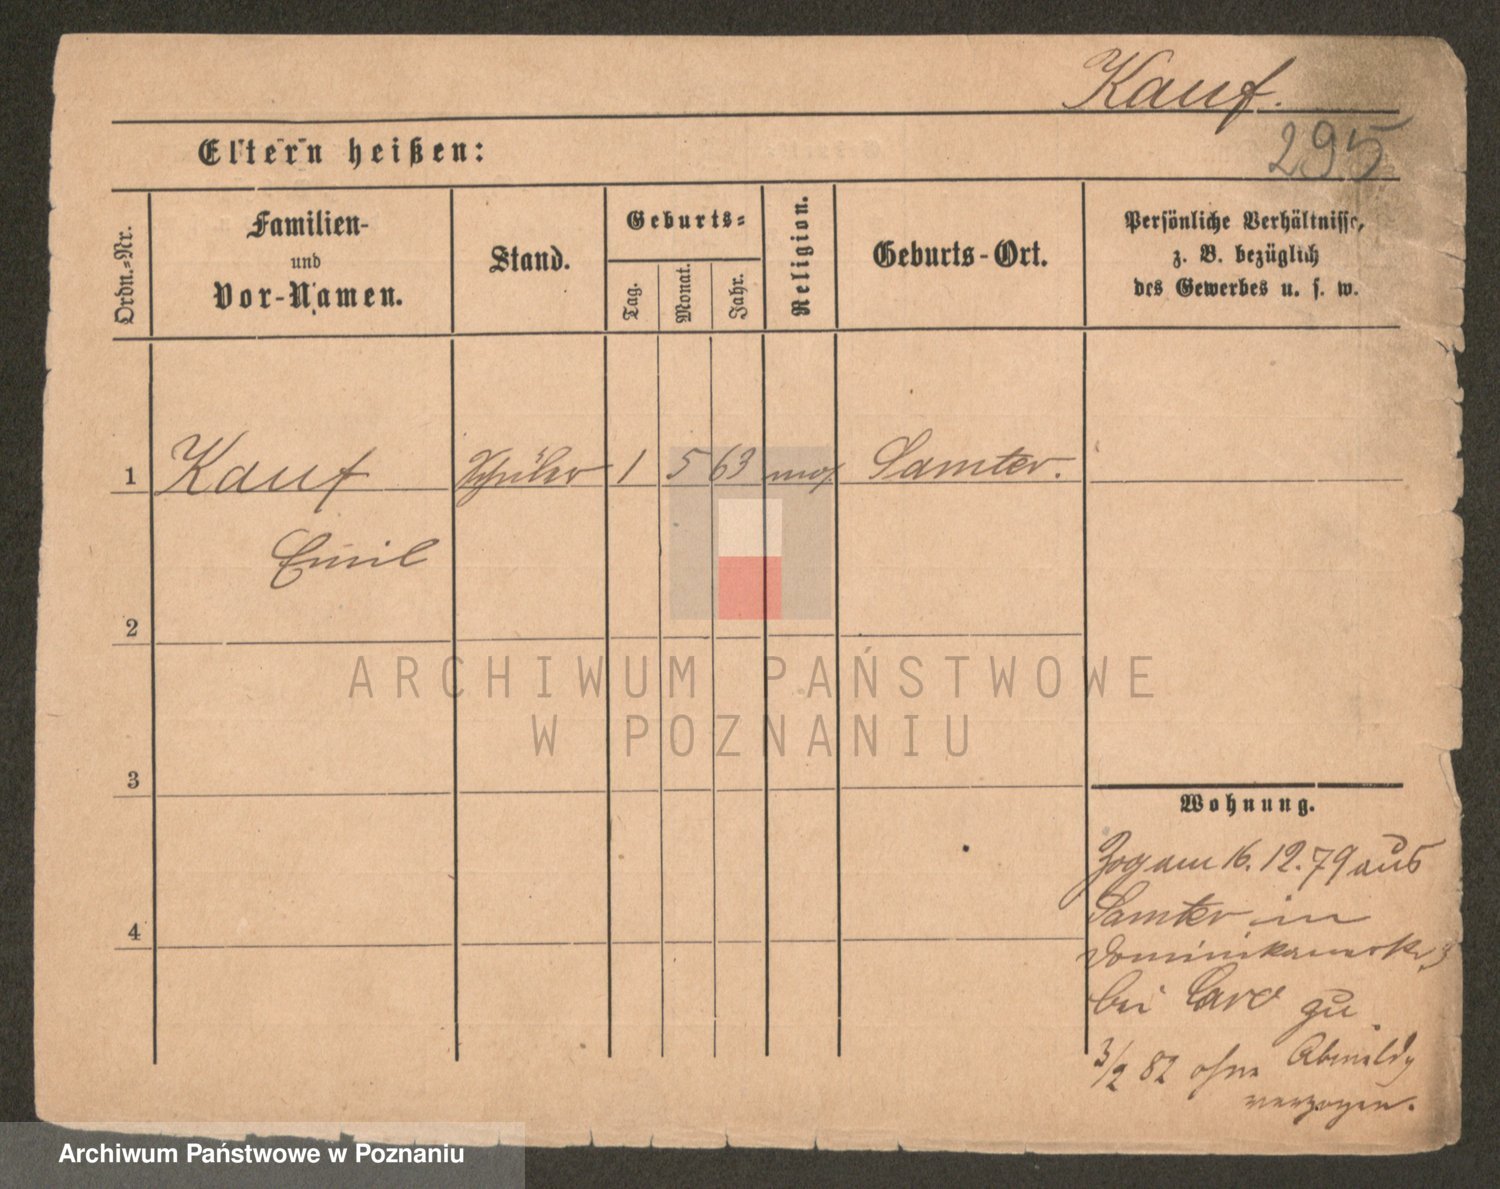 Kauf.
295
Eltern heißen:
Ordn.-Nr.
Familien-
und
Vor-Namen.
Stand.
Geburts-
Tag.
Monat.
Jahr.
Religion.
Geburts-Ort.
Persönliche Verhältnisse,
z. B. bezüglich
des Gewerbes u. s. w.
1 Kauf Schüler 1 5 63 mos. Samter.
Emil
2
3
4
Wohnung.
Zog am 16. 12. 79 aus
Samter in
Dominikanerstr. 3
bei Caro zu
3/2 82 ohne Abmeldg
verzogen.
ARCHIWUM PAŃSTWOWE
W POZNANIU
Archiwum Państwowe w Poznaniu